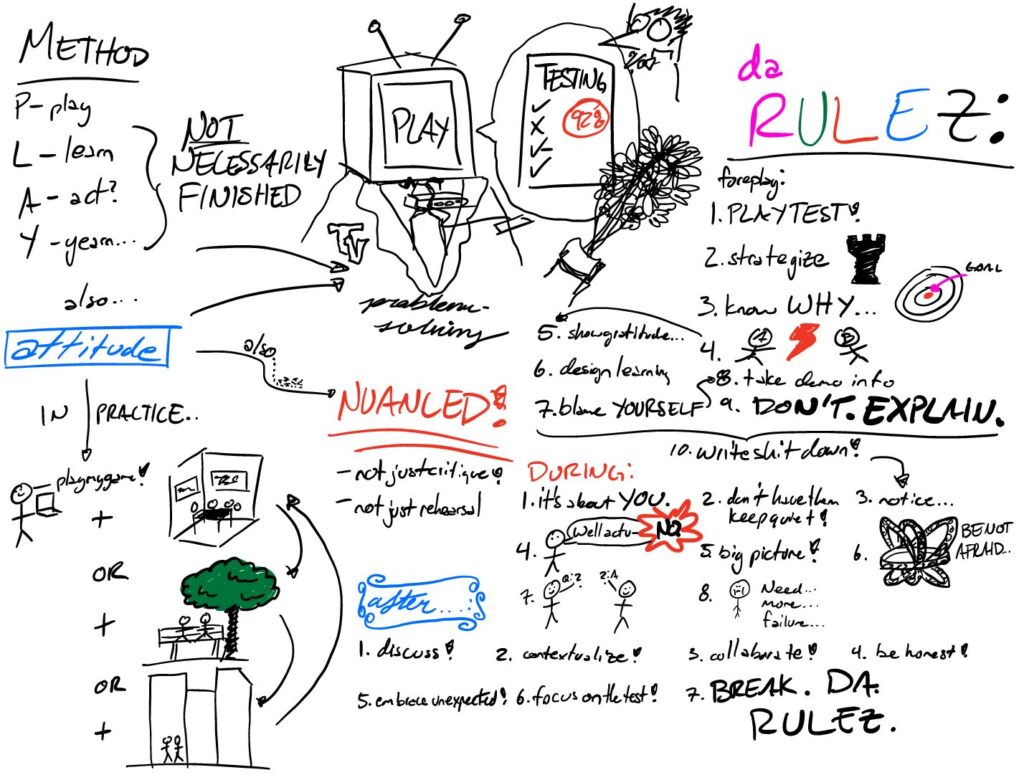 METHOD
P - play
L - learn
A - act?
Y - yearn...
NOT
NECESSARILY
FINISHED
also...
attitude
IN PRACTICE..
playmygame!
+
OR
+
OR
+
PLAY
TV
problem-
solving
TESTING
92%
also
NUANCED!
- not just critique!
- not just rehearsal
da
RULEZ:
foreplay:
1. PLAYTEST!
2. strategize
3. know WHY...
GOAL
4.
5. show gratitude...
6. design learning
7. blame YOURSELF
8. take demo info
9. DON'T. EXPLAIN.
10. write shit down!
DURING:
1. it's about YOU.
2. don't have them
keep quiet!
3. notice...
4. Well actu- NO.
5. big picture!
6. BE NOT
AFRAID...
7. Q:2 2:A
8. Need...
more...
failure...
after....
1. discuss!
2. contextualize!
3. collaborate!
4. be honest!
5. embrace unexpected!
6. focus on the test!
7. BREAK. DA.
RULEZ.